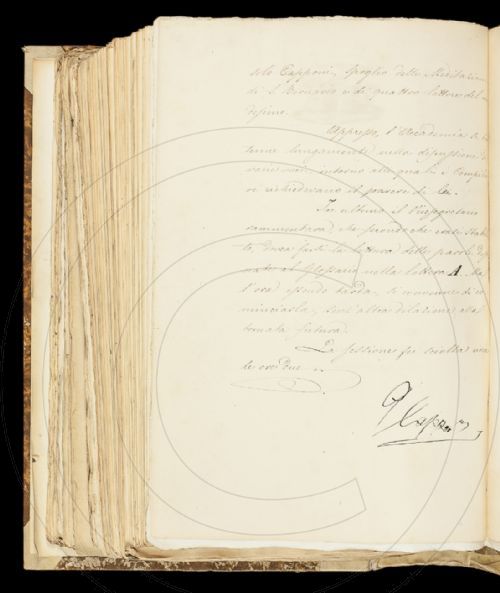 solo Capponi, spoglio delle Meditazion
di S. Bonav e di quattro lettere del
desimo.
Appresso, l'Accademia
tenne lungamente nella discussione
varie voci intorno alle quali i Compila
ri richiedevano il parere di Lei.
In ultimo il Vicesegretario
rammentava che secondo che era stabi
to, dovea farsi la lettura delle parole
nate al Glossario nella lettera A. Ma
l'ora essendo tarda, si convenne di co
minciarla, senz'altra dilazione alla
tornata futura.
La sessione fu sciolta
le ore Due.
G Capponi